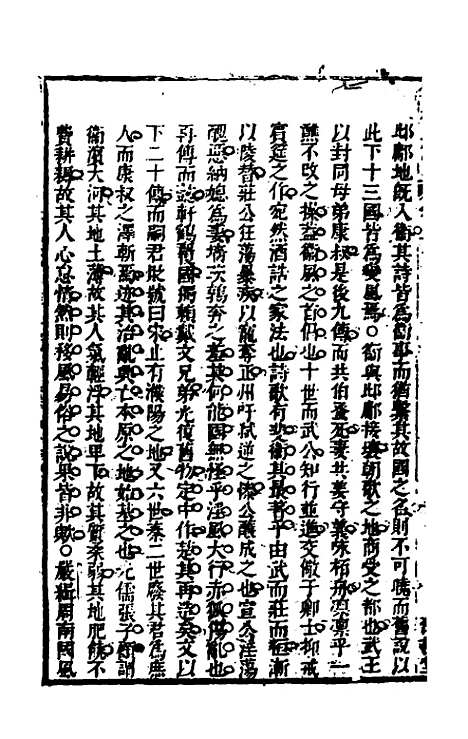 邶鄘地既入衛其詩皆爲衛事而猶繫其故國之名則不可曉而舊說以
此下十三國皆爲變風焉○衛與邶鄘接壤朝歌之地商受之都也武王
以封同母弟康叔是後九傳而共伯蚤死妻共姜守義味柏舟凛凛乎一
醮不改之操益衛風之首倡也十世而武公知行並進交儆于卿士抑戒
賓筵之作宛然酒誥之家法也詩歌有斐衛其最著乎由武而莊而桓漸
以陵替莊公狂蕩暴疾以寵奪正州吁弑逆之傣公釀成之也宣公淫蕩
醜惡納媳爲妻墻茨鶉奔之 其何能國無怪乎淫風大行赤狐 亂也
再傳而懿軒鶴 國 賴戴文兄弟光復舊物定中作楚其再造矣文以
下二十傳而嗣君貶號曰 止有濮陽之地又六世秦二世廢其君爲庶
人而康叔之澤斬焉迹其治亂興亡本原之地始基之也 儒張子 謂
衛濵大河其地土薄故其人氣輕浮其地平下故其質柔弱其地肥饒不
費耕耨故其人心怠惰然則移風易俗之說果皆非歟○嚴緝周南國風